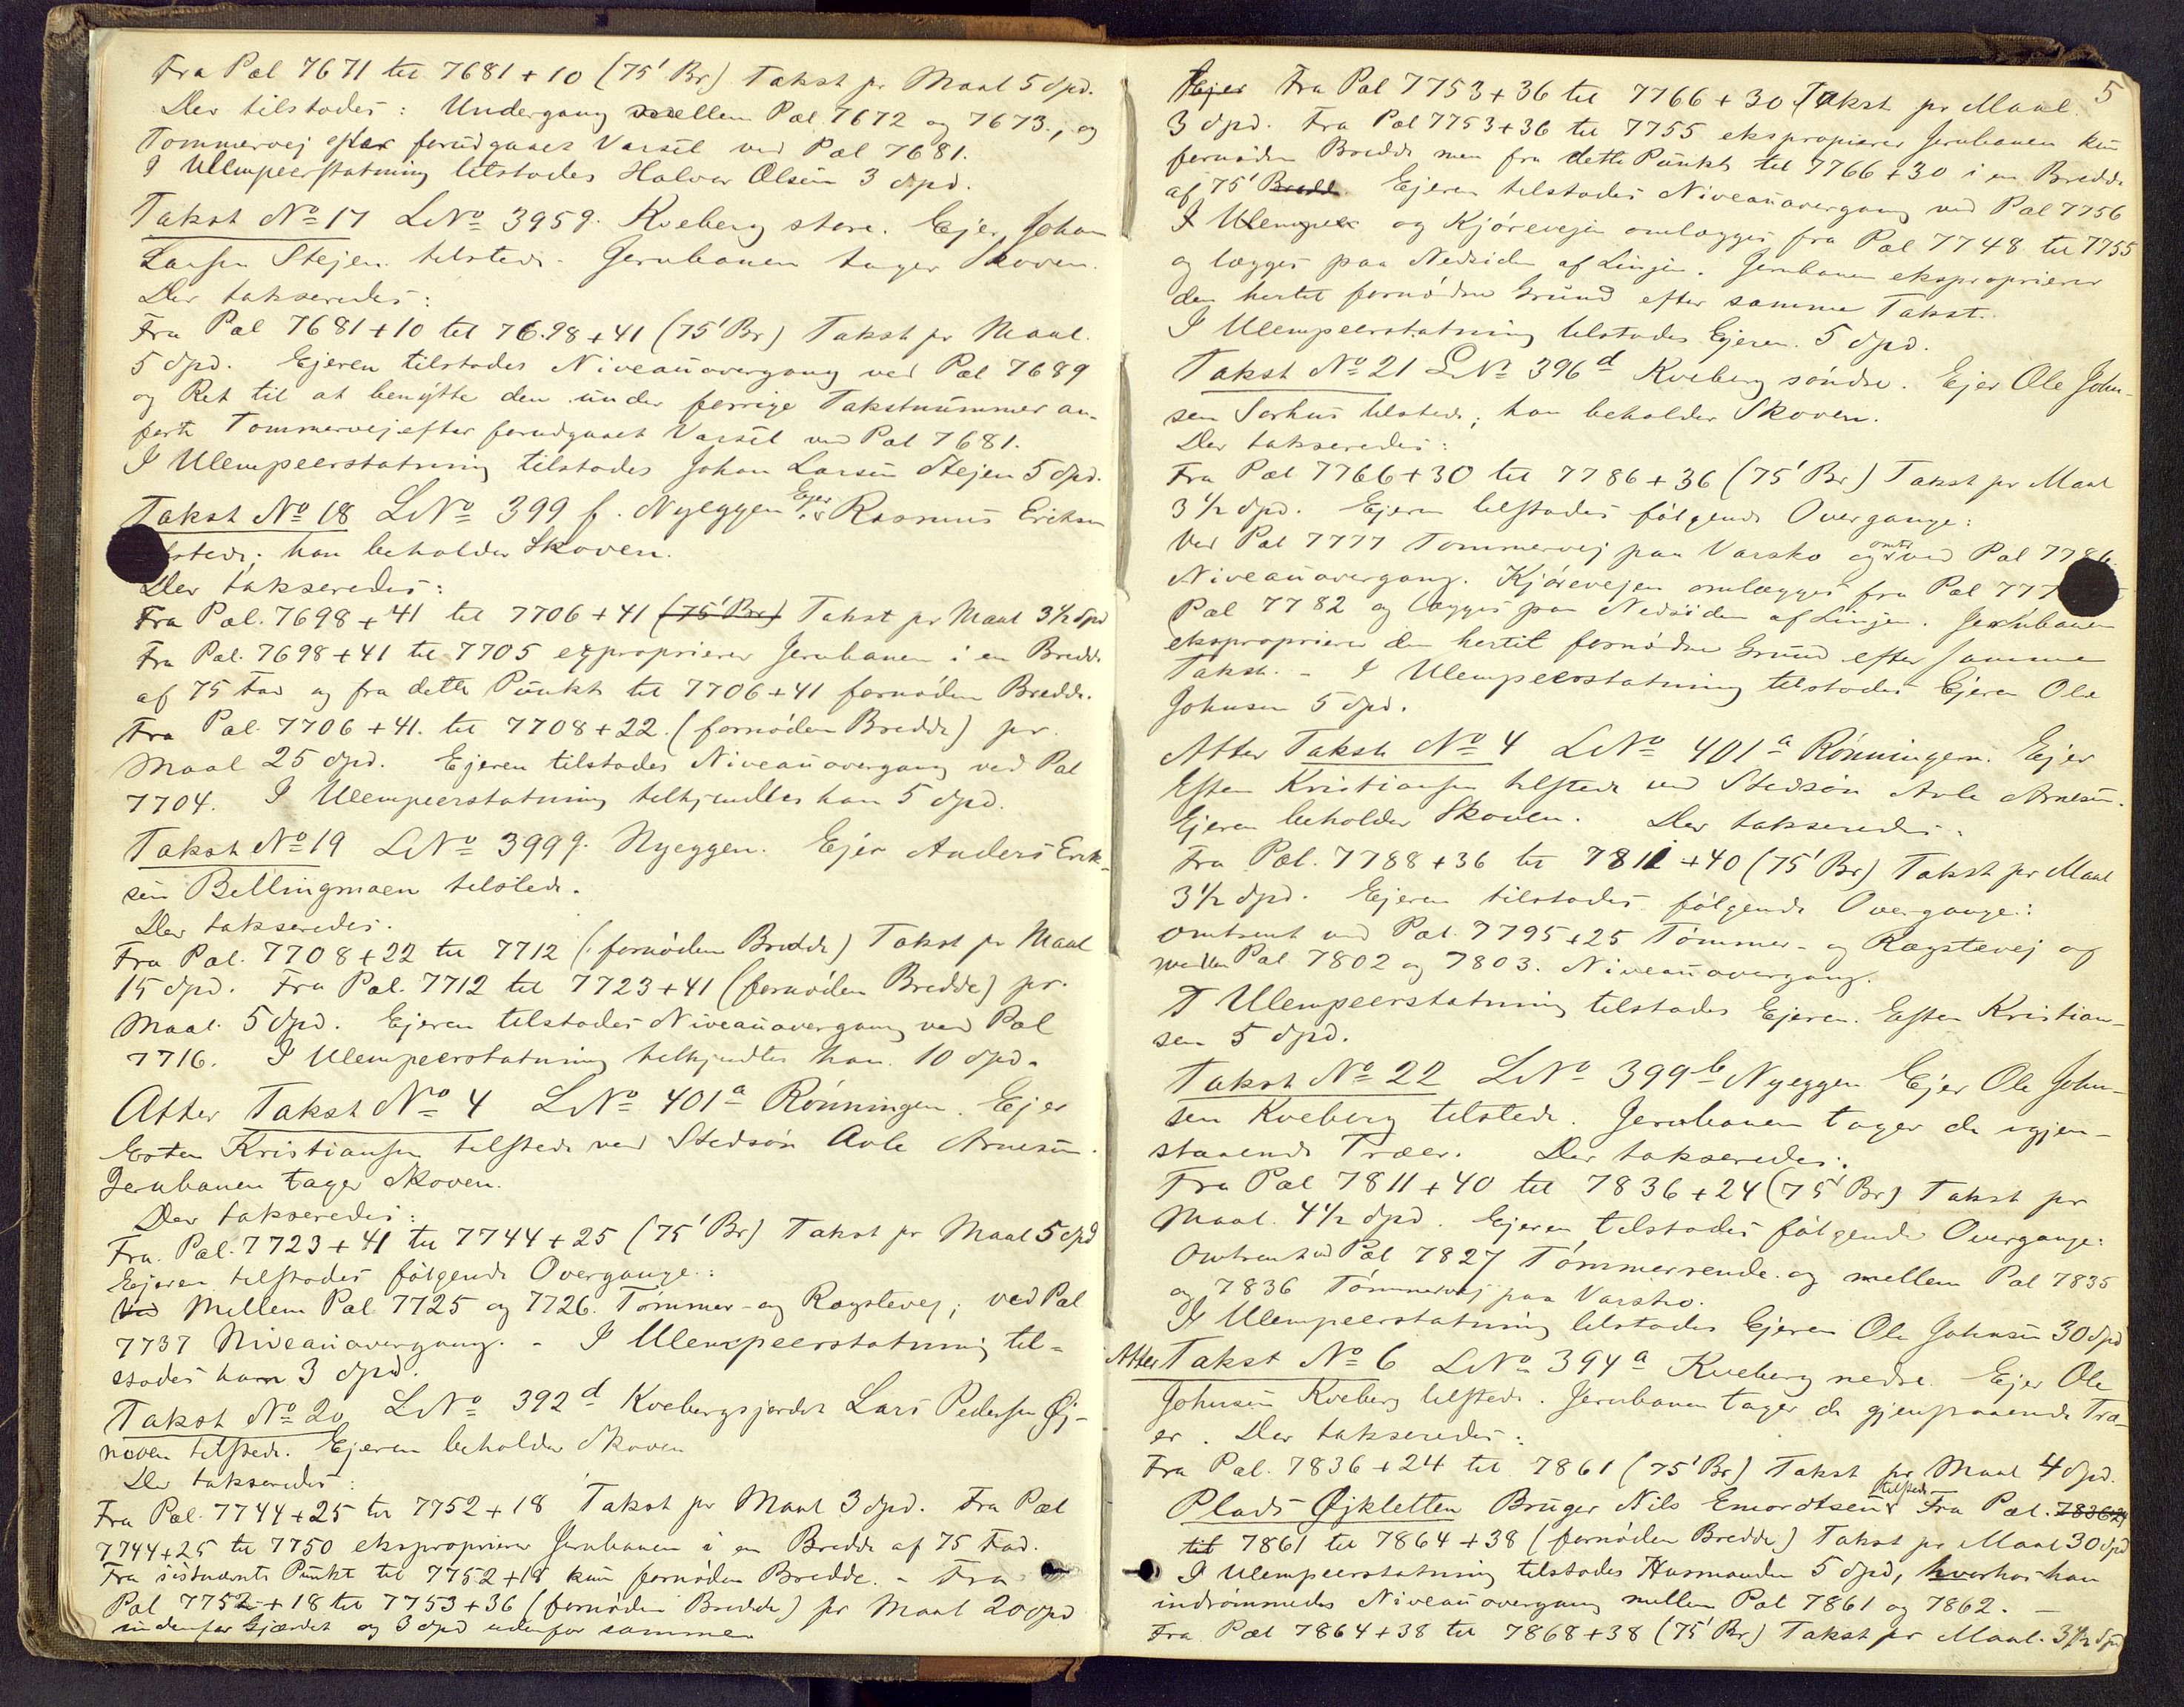 Fra Pæl 7671 til 7681 + 10 (75' Br) Takst pr Maal 5 spd.
Der tilstodes: Undergang mellem Pæl 7672 og 7673., og
Tømmervej efter forudgaaet Varsel ved Pæl 7681.
I Ulempeerstatning tilstodes Halvor Olsen 3 spd.
Takst No 17 LNo 395g. Kveberg store. Ejer, Johan
Larsen Stejen tilstede. Jernbanen tager Skoven.
Der takseredes:
Fra Pæl 7681 + 10 til 7698 + 41 (75' Br) Takst pr Maal
5 spd. Ejeren tilstodes Niveauovergang ved Pæl 7689
og Ret til at benytte den under forrige Takstnummer an-
førte Tømmervej efter forudgaaet Varsel ved Pæl 7681.
I Ulempeerstatning tilstodes Johan Larsen Stejen 5 spd.
Takst No 18 LNo 399 f. Nyeggen Ejer Rasmus Eriksen
tilstede; han beholder Skoven.
Der takseredes:
Fra Pæl. 7698 + 41 til 7706 + 41 (75' Br) Takst pr Maal 3 1/2 spd
Fra Pæl. 7698 + 41 til 7705 exproprierer Jernbanen i en Bredde
af 75 Fod og fra dette Punkt til 7706 + 41 fornøden Bredde.
Fra Pæl 7706 + 41. til 7708 + 22. (fornøden Bredde) pr.
Maal 25 spd. Ejeren tilstodes Niveauovergang ved Pæl
7704. I Ulempeerstatning tilkjendtes han 5 spd.
Takst No 19 LNo 399g. Nyeggen. Ejer Anders Erik-
sen Bellingmoen tilstede.
Der takseredes.
Fra Pæl. 7708 + 22 til 7712 (fornøden Bredde) Takst pr Maal
15 spd. Fra Pæl. 7712 til 7723 + 41 (fornøden Bredde) pr.
Maal 5 spd. Ejeren tilstodes Niveauovergang ved Pæl
7716. I Ulempeerstatning tilkjendtes han 10 spd.
Atter Takst No 4 LNo 401a Rønningen. Ejer
Esten Kristiansen tilstede ved Stedsøn Avle Arnesen.
Jernbanen tager Skoven.
Der takseredes:
Fra. Pæl. 7723 + 41 til 7744 + 25 (75' Br) Takst pr Maal 5 spd
Ejeren tilstodes følgende Overgange:
Ved Mellem Pæl 7725 og 7726. Tømmer- og Ragstevej; ved Pæl
7737 Niveauovergang. - I Ulempeerstatning til-
stodes ham 3 spd.
Takst No 20 LNo 392d Kvebergsjordet Lars Pedersen Øj-
moen tilstede. Ejeren beholder Skoven
Der takseredes:
Fra Pæl. 7744 + 25 til 7752 + 18 Takst pr Maal 3 spd. Fra Pæl
7744 + 25 til 7750 eksproprierer Jernbanen i en Bredde af 75 Fod.
Fra sidstnævnte Punkt til 7752 + 18 kun fornøden Bredde. - Fra
Pæl 7752 + 18 til 7753 + 36 (fornøden Bredde) pr Maal 20 spd
indenfor Gjærdet og 3 spd udenfor samme
5
Ejer Fra Pæl 7753 + 36 til 7766 + 30 Takst pr Maal
3 spd. Fra Pæl 7753 + 36 til 7755 ekspropierer Jernbanen kun
fornøden Bredde men fra dette Punkt til 7766 + 30 i en Bredde
af 75' Bredde. Ejeren tilstodes Niveauovergang ved Pæl 7756
I Ulempeer og Kjørevejen omlægges fra Pæl 7748 til 7755
og lægges paa Nedsiden af Linjen. Jernbanen eksproprierer
den hertil fornødne Grund efter samme Takst.
I Ulempeerstatning tilstodes Ejeren. 5 spd.
Takst No 21 LNo 396d Kveberg søndre. Ejer Ole John-
sen Sorhus tilstede; han beholder Skoven.
Der takseredes:
Fra Pæl 7766 + 30 til 7786 + 36 (75' Br) Takst pr Maal
3 1/2 spd. Ejeren tilstodes følgende Overgange:
Ved Pæl 7777 Tømmervej paa Varsko og omtr ved Pæl 7786
Niveauovergang. Kjørevejen omlægges fra Pæl 777
Pæl 7782 og lægges paa Nedsiden af Linjen. Jernbanen
eksproprierer den hertil fornødne Grund efter samme
Takst. - I Ulempeerstatning tilstodes Ejeren Ole
Johnsen 5 spd.
Atter Takst No 4 LNo 401a Rønningen. Ejer
Esten Kristiansen tilstede ved Stedsøn Avle Arnesen.
Ejeren beholder Skoven. Der takseredes:
Fra Pæl. 7788 + 36 til 7811 + 40 (75' Br) Takst pr Maal
3 1/2 spd. Ejeren tilstodes følgende Overgange:
omtrent ved Pæl 7795 + 25 Tømmer- og Ragstevej og
mellem Pæl 7802 og 7803. Niveauovergang.
I Ulempeerstatning tilstodes Ejeren. Esten Kristian-
sen 5 spd.
Takst No 22 LNo 399b Nyeggen Ejer Ole John-
sen Kveberg tilstede. Jernbanen tager de igjen-
staaende Træer. Der takseredes:
Fra Pæl 7811 + 40 til 7836 + 24 (75' Br) Takst pr
Maal. 4 1/2 spd. Ejeren tilstodes følgende Overgange:
Omtrent ved Pæl 7827 Tømmerrende og mellem Pæl 7835
og 7836 Tømmervej paa Varsko.
I Ulempeerstatning tilstodes Ejeren Ole Johnsen 30 spd
Atter Takst No 6 LNo 394a Kveberg nedre. Ejer Ole
Johnsen Kveberg tilstede. Jernbanen tager de gjenstaaende Træ-
er. Der takseredes:
Fra Pæl. 7836 + 24 til 7861 (75' Br) Takst pr Maal 4 spd.
Plads Øjkletten Bruger Nils Emordtsen tilstede Fra Pæl. 7836+24
til 7861 til 7864 + 38 (fornøden Bredde) Takst pr Maal 30 spd
I Ulempeerstatning tilstodes Husmanden 5 spd, hvorhos han
indrømmedes Niveauovergang mellem Pæl 7861 og 7862. -
Fra Pæl 7864 + 38 til 7868 + 38 (75' Br) Takst pr Maal. 3 1/2 spd